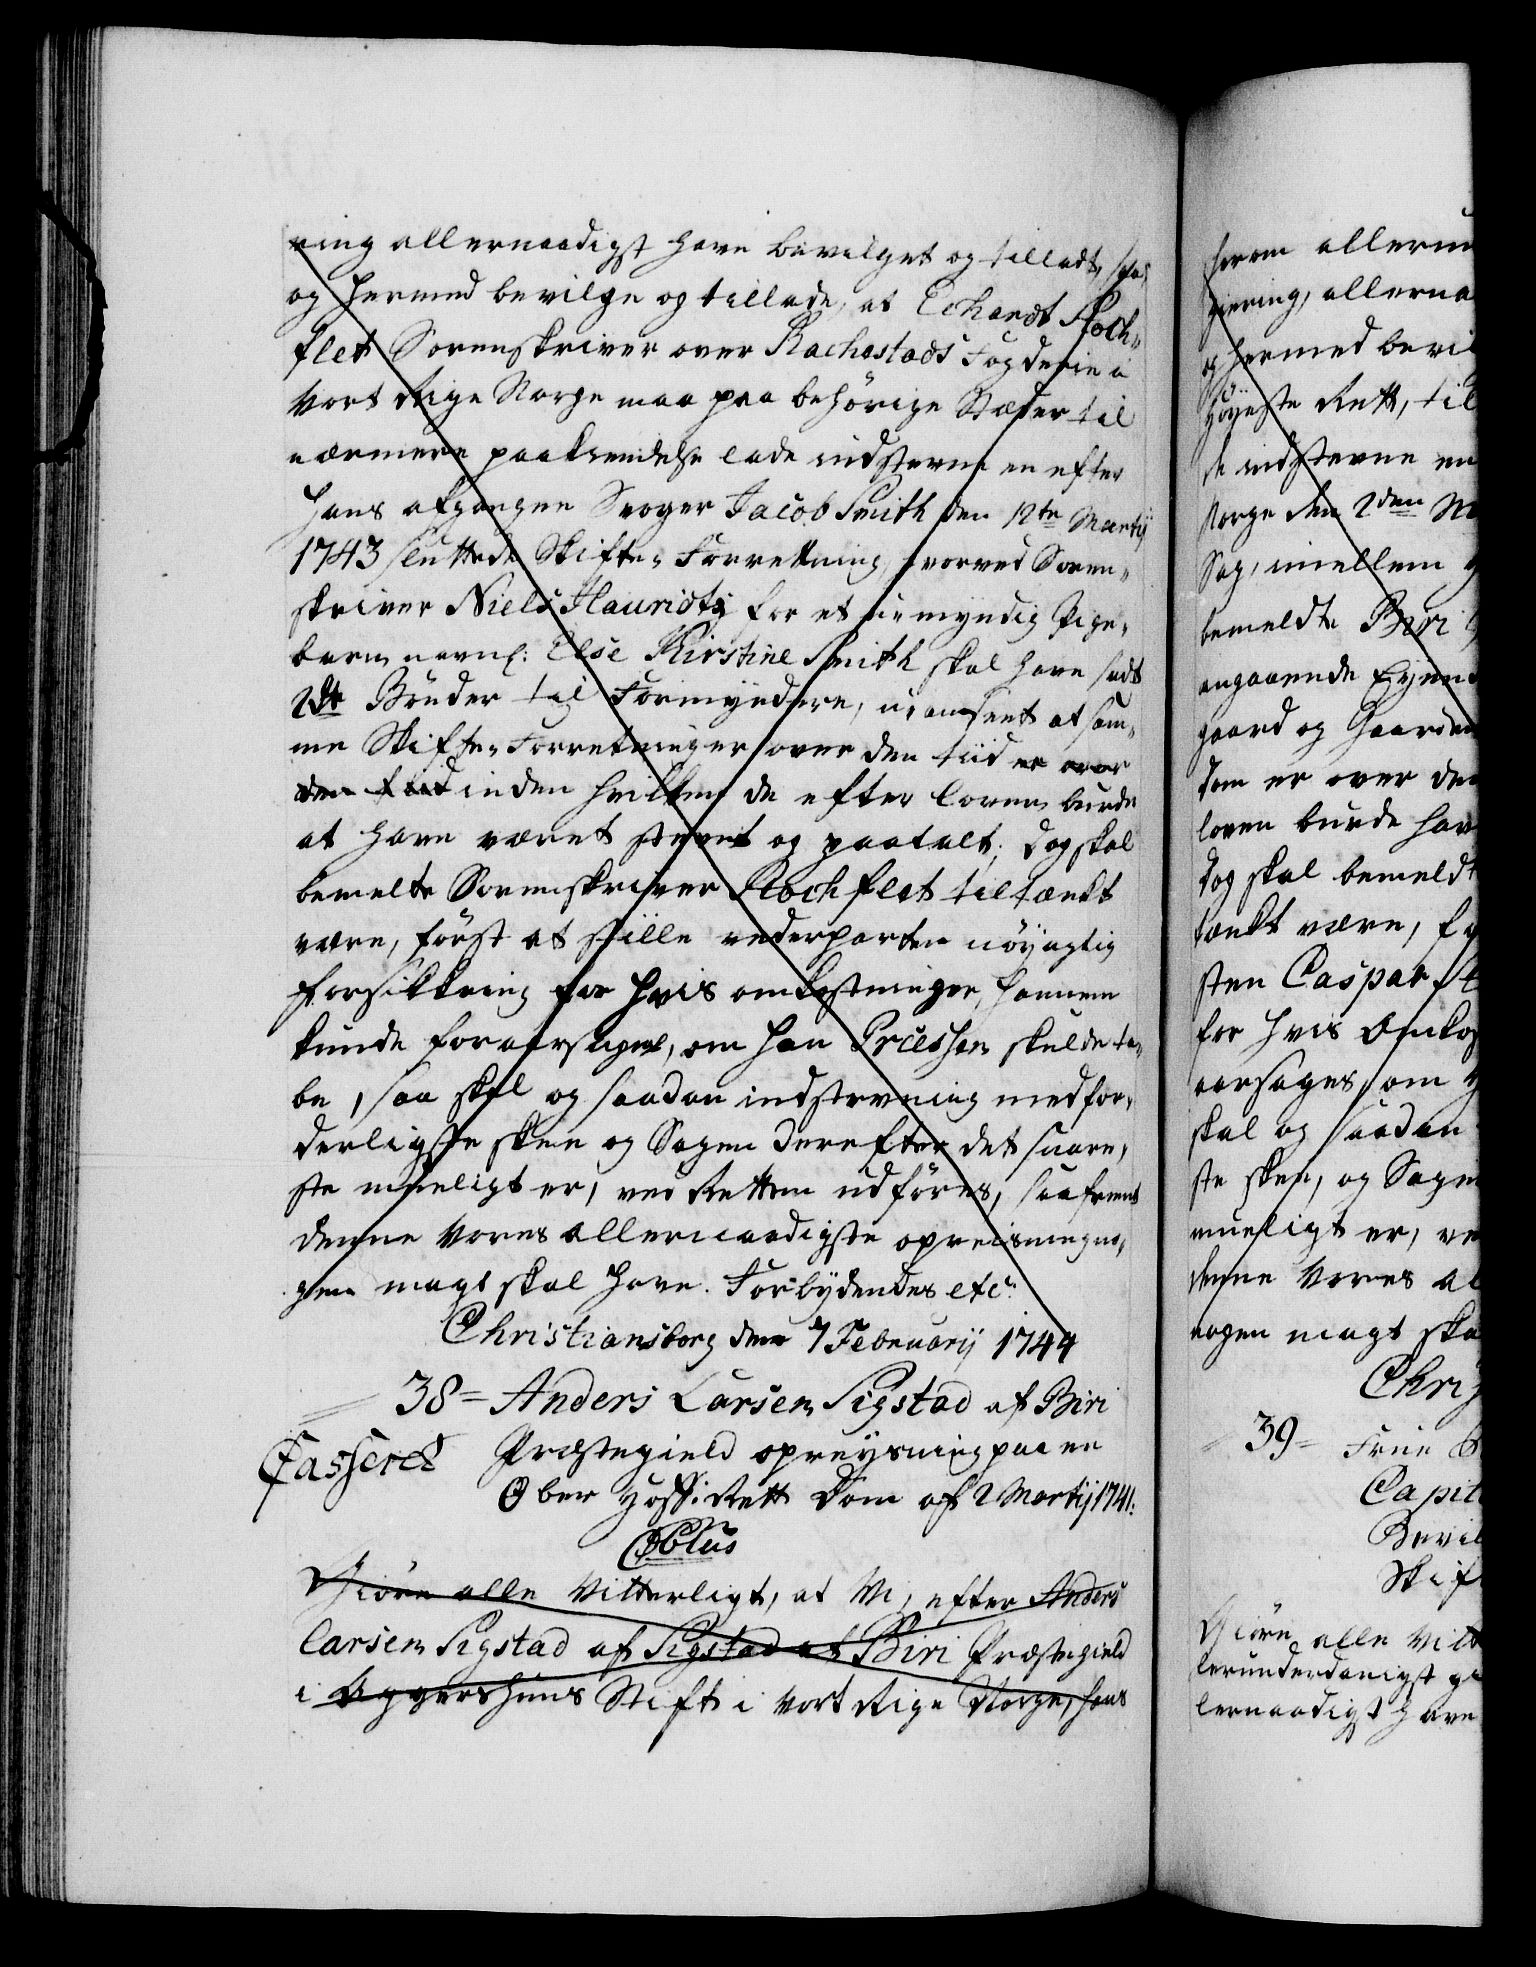 ring allernaadigst have bevilget og tilladt, saa
og hermed bevilge og tillade, at Echardt Stoch-
flet Sorenskriver over Rachestads Fogderie i
Vort Rige Norge maa paa behörige Stæder til
nærmere paakiendelse lade indstevne en efter
hans afgangne Svoger Jacob Smith den 12te Martij
1743 sluttede Skifte-Forrettning, hvorved Soren-
skriver Niels Hauridtz for et u-myndig Pige-
barn navnl: Else Kirstine Smith skal have sadt
2de Bönder til Formyndere, u-anseet at sam-
me Skifte-Forretninger over den tiid er over
den tiid inden hvilken de efter loven burde
at have været stevnt og paatalt; dog skal
bemelte Sorenskriver Stochflet tiltænkt
være, först at stille vederparten nöyagtig
forsikkring for hvis omkostninger, hannem
kunde foraarsages, om han Processen skulde ta-
be, saa skal og saadan indstevning medfor-
derligste skee og Sagen derefter det snare-
ste mueligt er, ved Retten udföres, saafremt
denne Vores allernaadigste opreisning no-
gen magt skal have. Forbydendes etc:
Christiansborg den 7 Februarij 1744
38= Anders Larsen Sigstad af Biri
Casseret Præstegield opreysning paa en
Ober Hoffs Rett Dom af 2 Martij 1741.
C6tus
Giöre alle Vitterligt, at Vi, efter Anders
Larsen Sigstad af Sigstad af Biri Præstegield
i Aggershuus Stift i Vort Rige Norge, hans
herom allerun
giering, allerna
og hermed bevil
Höyeste Rett, til
de indstevne en
Norge den 2den M
Sag, imellem
bemeldte Biri
angaaende Eyend
gaard og Gaarden
dom er over den
loven burde hav
dog skal bemeldt
tænkt være, f
sten Caspar
for hvis Omkos
aarsages, om
skal og saadan
ste skee, og Sagen
mueligt er, ve
denne Vores al
nogen magt ska
Chri
39= Frue
Capit
Bevil
Skif
Giöre alle Vitt
lerunderdanigst
lernaadigst have